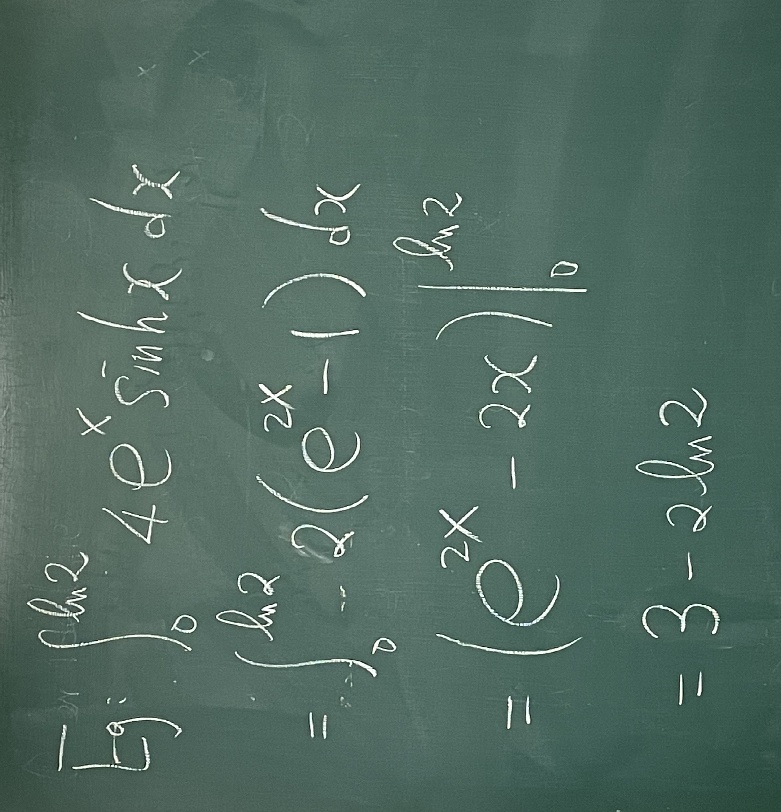 Eg: ∫₀^{ln2} 4e^x sinhx dx
= ∫₀^{ln2} 2(e^{2x} - 1) dx
= (e^{2x} - 2x)|₀^{ln2}
= 3 - 2ln2